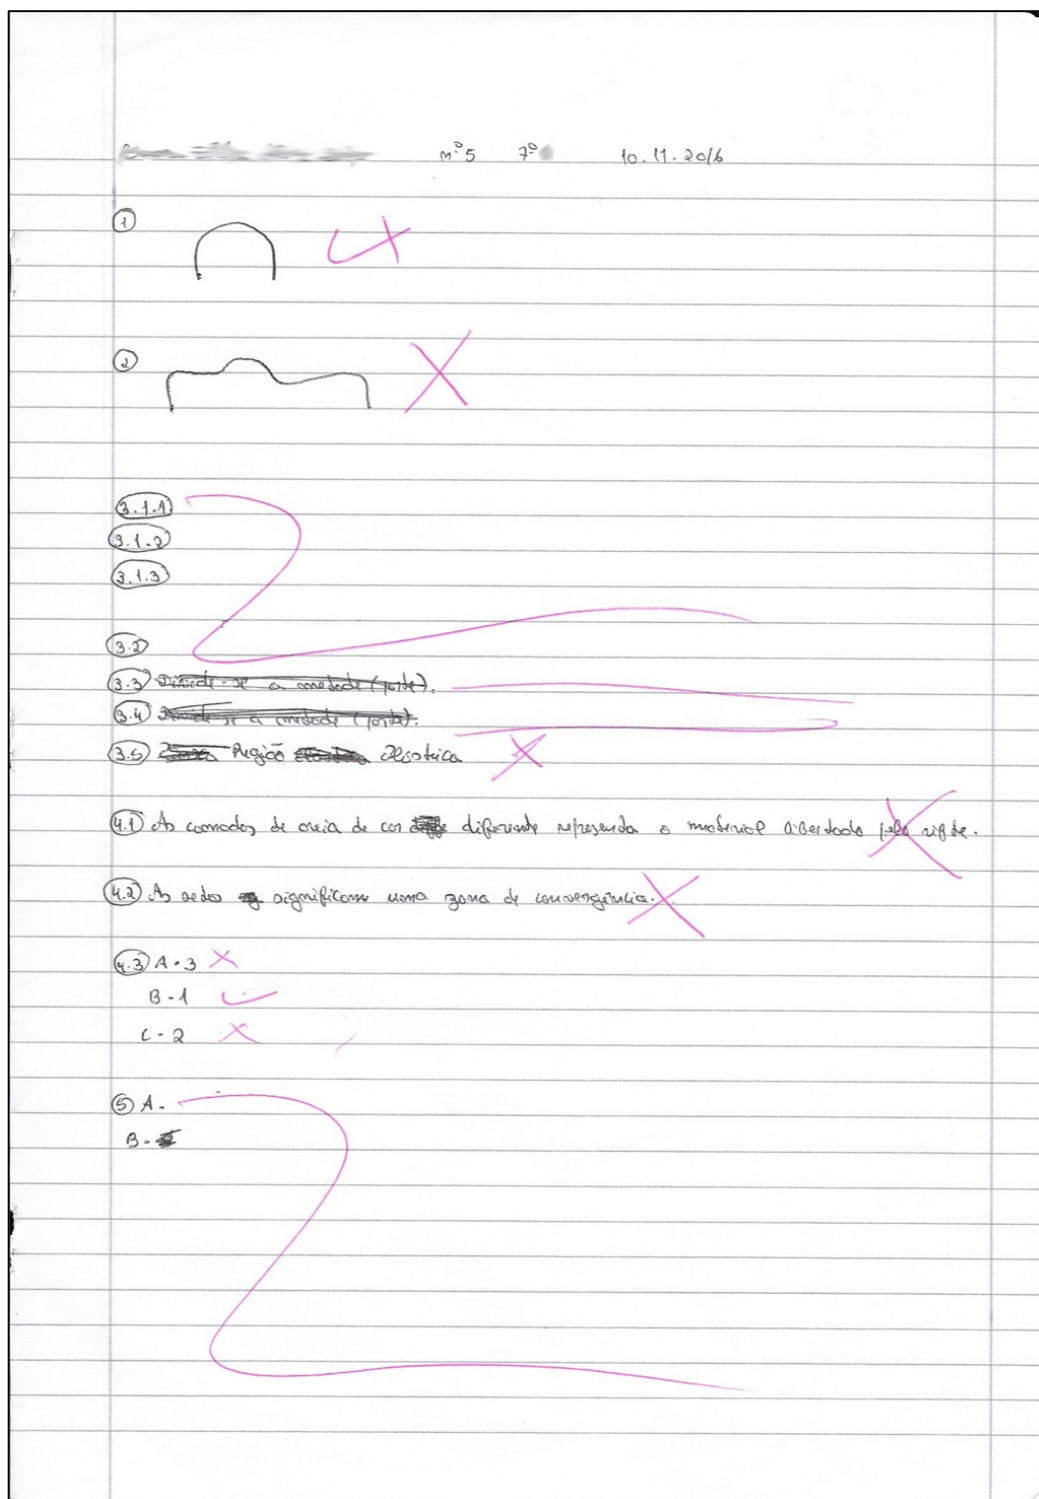 n.º 5 7º 10.11.2016
1
2
3.1.1
3.1.2
3.1.3
3.2
3.3 Divide-se a metade (parte).
3.4 Divide-se a metade (parte).
3.5 Região Elástica
4.1 As camadas de areia de cor diferente representa o material libertado pelo rifte.
4.2 As setas significam uma zona de convergência.
4.3 A - 3
B - 1
C - 2
5 A -
B -